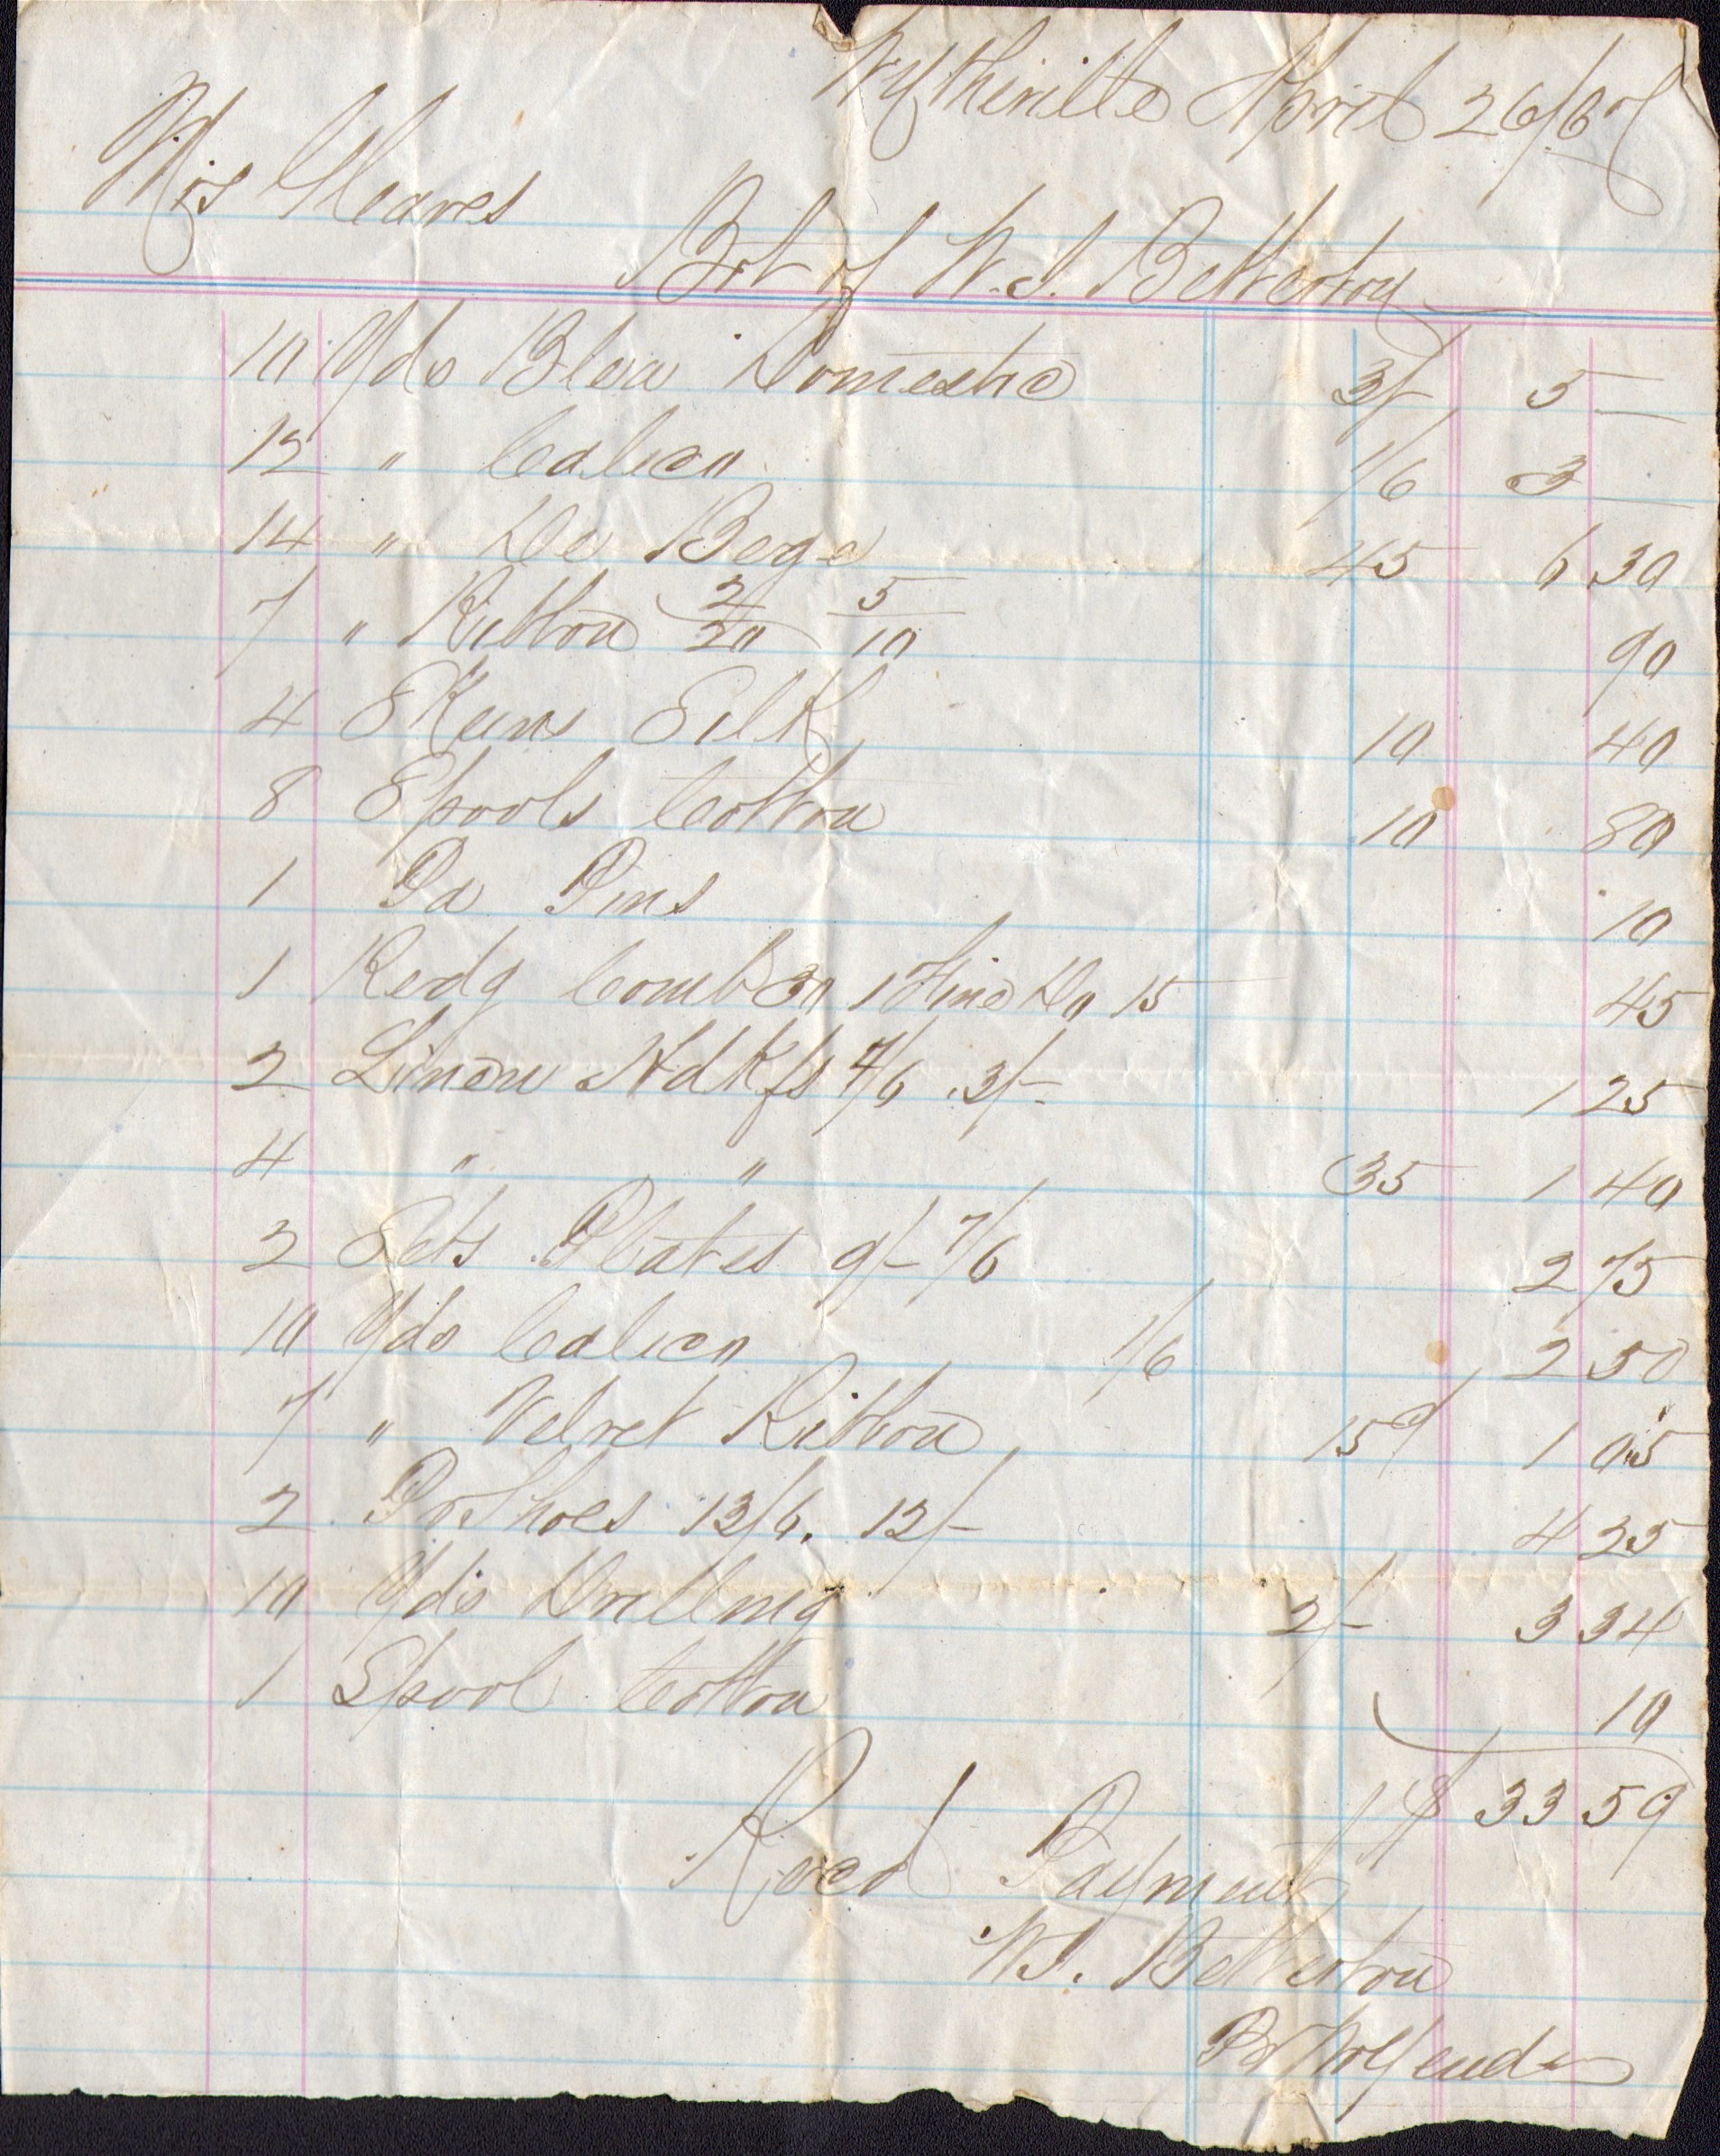 Wytheville April 26/67
Mrs Cleaves
Bot of W.S. Betterton
10 Yds Blea Domestic 3/- 5 —
12 " Calico 1/6 3 —
14 " De Bege 45 6 30
7 " Ribbon 2/20 5/10 90
4 Skeins Silk 10 40
8 Spools Cotton 10 80
1 Pa Pins 10
1 Redg Comb 30 1 Fine Do 15 45
2 Linen Hdkfs 4/6 3/- 1 25
4 " " 35 1 40
2 Sets Plates 9/- 7/6 2 75
10 Yds Calico 1/6 2 50
7 " Velvet Ribbon 15 1 05
2 Pr Shoes 13/6. 12/- 4 25
10 Yds Drilling 2/- 3 34
1 Spool Cotton 10
$ 33 59
Recd Payment
W.S. Betterton
Pr